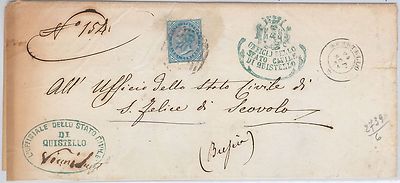 N° 154.
UFFICIO DELLO
STATO CIVILE
DI QUISTELLO
QUISTELLO
All' Ufficio dello Stato Civile di
S. Felice di Scovolo
(Brescia)
UFFIZIALE DELLO STATO CIVILE
DI
QUISTELLO
2739
6